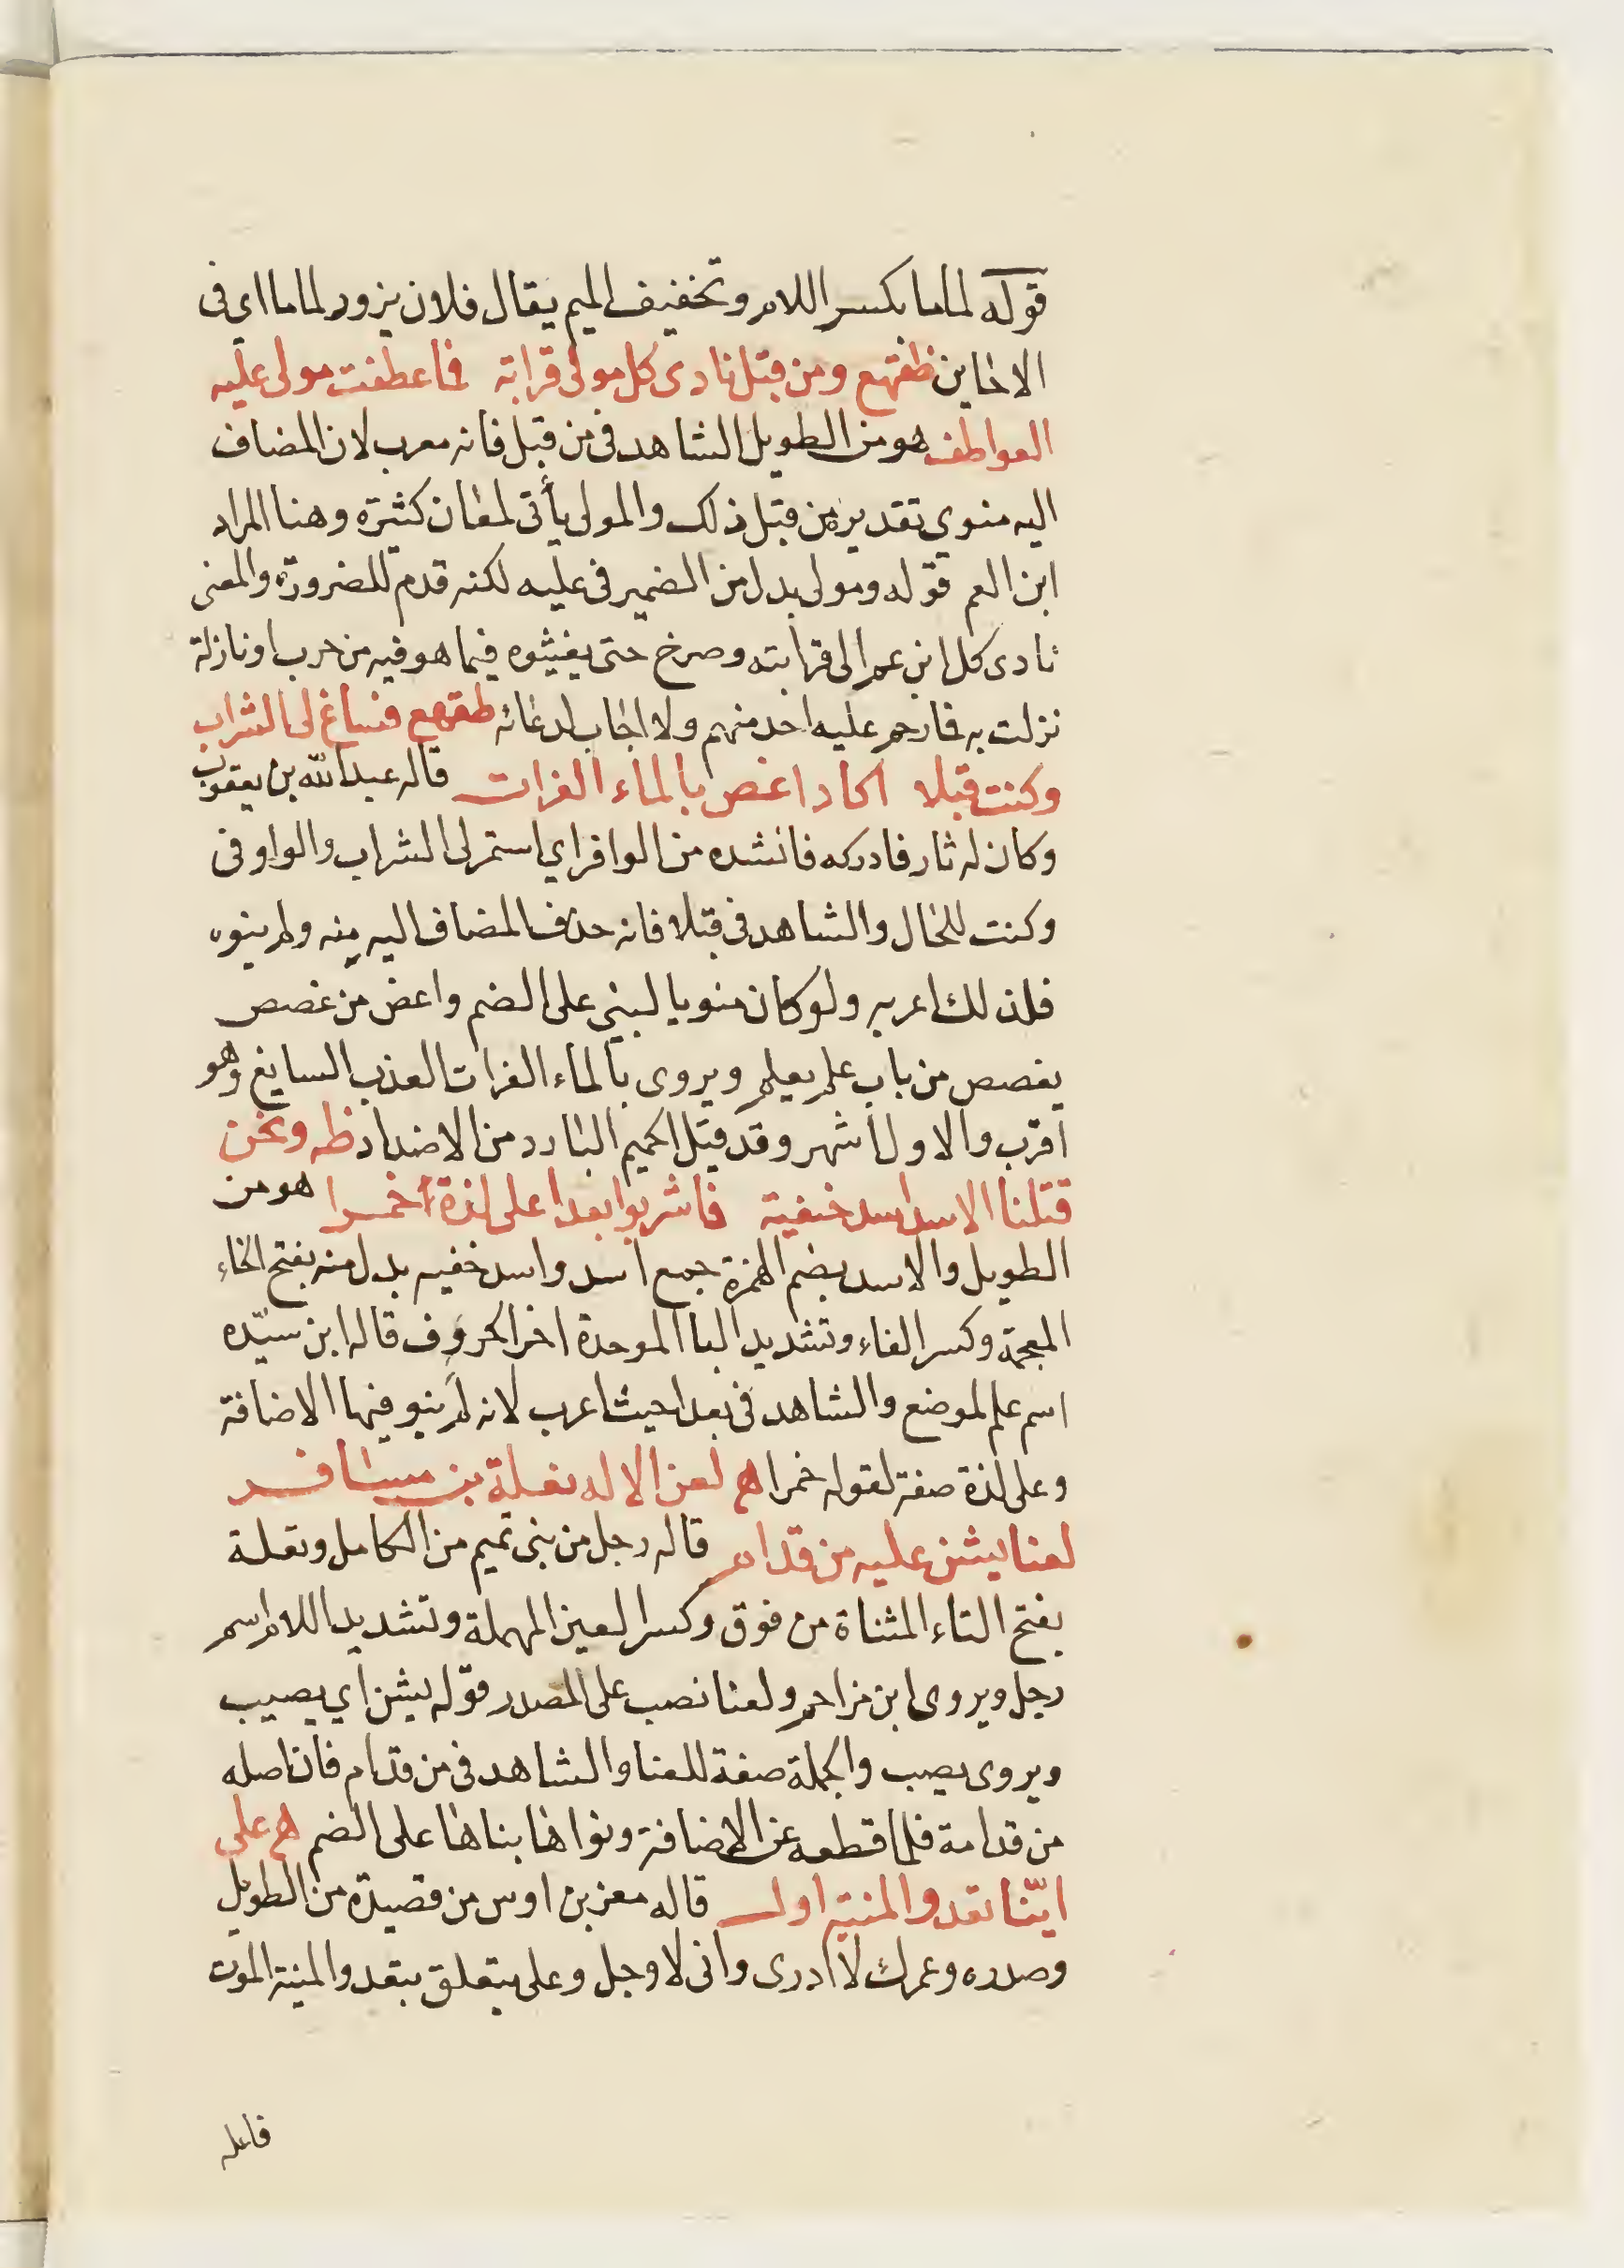 قوله لماما بكسر اللام وتخفيف الميم يقال فلان يزور لماما اى فى
الاحايين ظقهع ومن قبل نادى كل مولى قرابة فما عطفت مولى عليه
العواطف هو من الطويل الشاهد فى من قبل فانه معرب لان المضاف
اليه منوى تقديره من قبل ذلك والمولى يأتى لمعان كثيرة وهنا المراد
ابن العم قوله ومولى بدل من الضمير فى عليه لكنه قدم للضرورة والمعنى
نادى كل ابن عم الى قرابته وصرخ حتى يغيثوه فيما هو فيه من حرب او نازلة
نزلت به فما رحم عليه احد منهم ولا اجاب لدعائه طقهع فساغ لى الشراب
وكنت قبلا اكاد اغص بالماء الفرات قاله عبد الله بن يعقوب
وكان له ثار فادركه فانشده من الوافر اي استمر لى الشراب والواو فى
وكنت للحال والشاهد فى قبلا فانه حذف المضاف اليه منه ولم ينوه
فلذلك اعربه ولو كان منويا لبني على الضم واغص من غصص
يغصص من باب علم يعلم ويروى بالماء الفرات العذب السايغ وهو
اقرب والاول اشهر وقد قيل الحميم البارد من الاضداد ظه ونحن
قتلنا الاسد اسد خفية فاشربوا بعدا على لذة خمرا هو من
الطويل والاسد بضم الهمزة جمع اسد واسد خفيه بدل منه بفتح الخاء
المعجمة وكسر الفاء وتشديد البا الموحدة اخر الحروف قاله ابن سيّده
اسم علم لموضع والشاهد فى بعدا حيث اعرب لانه لم ينو فيها الاضافة
وعلى لذة صفة لقوله خمرا هع لعن الاله تعلة بن مسافر
لعنا يشن عليه من قدام قاله رجل من بنى تميم من الكامل وتعلة
بفتح التاء المثناة من فوق وكسر العين المهملة وتشديد اللام اسم
رجل ويروى ابن مزاحم ولعنا نصب على المصدر قوله يشن اي يصيب
ويروى يصب والجملة صفة للعنا والشاهد فى من قدام فان اصله
من قدامة فلما قطعه عن الاضافة ونواها بناها على الضم هع على
ايّنا تعدو المنية اول قاله معن بن اوس من قصيدة من الطويل
وصدره وعمرك لا ادرى وانى لاوجل وعلى يتعلق بتعدو المنية الموت
فاعله